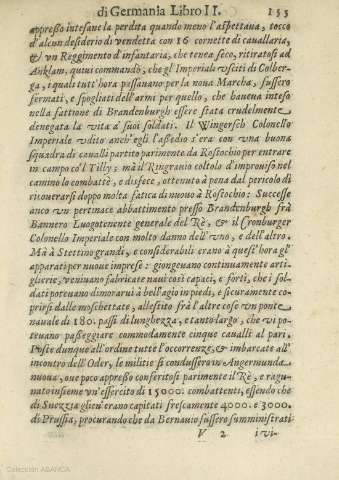 di Germania Libro II. 155
appresso intesane la perdita quando meno l'aspettaua, tocco
d'alcun desiderio di vendetta con 16 cornette di cauallaria,
& vn Reggimento d'infantaria, che tenea seco, ritiratosi ad
Anklam, qui ui commandò, che gl'Imperiali vsciti di Colber-
ga, i quali tutt'hora passauano per la noua Marcha, fussero
fermati, e spogliati dell'armi per quello, che haueua inteso
nella fattione di Brandenburgh essere stata crudelmente
denegata la vita a' suoi soldati. Il Wingersch Colonello
Imperiale vdito anch'egli l'assedio s'era con vna buona
squadra di caualli partito parimente da Rostochio per entrare
in campo co'l Tilly; mà il Ringrauio coltolo d'improuiso nel
camino lo combattè, e disfece, ottenuto à pena dal pericolo di
ricouerarsi doppo molta fatica di nuouo à Rostochio: Successe
anco vn pertinace abbattimento presso Brandenburgh frà
Bannero Luogotenente generale del Rè, & il Cronburger
Colonello Imperiale con molto danno dell'vno, e dell'altro.
Mà à Stettino grandi, e considerabili erano à quest'hora gl'
apparati per nuoue imprese: giongeuano continuamente arti-
glierie, veniuano fabricate naui così capaci, e forti, che i sol-
dati poteuano dimorarui à bell'agio in piedi, e sicuramente co-
prirsi dalle moschettate, allestito frà l'altre cose vn ponte
nauale di 180. passi di lunghezza, e tanto largo, che vi po-
teuano passeggiare commodamente cinque caualli al pari.
Poste dunque all'ordine tutte l'occorrenze, & imbarcate all'
incontro dell'Oder, le militie si condussero in Angermunda
nuoua, oue poco appresso conferitosi parimente il Rè, e ragu-
nato insieme vn'essercito di 15000. combattenti, essendo che
di Suezzia gli eu'erano capitati frescamente 4000. e 3000.
di Prussia, procurando che da Bernauio fussero sumministrati
V 2 i vi-
Colección ABANCA